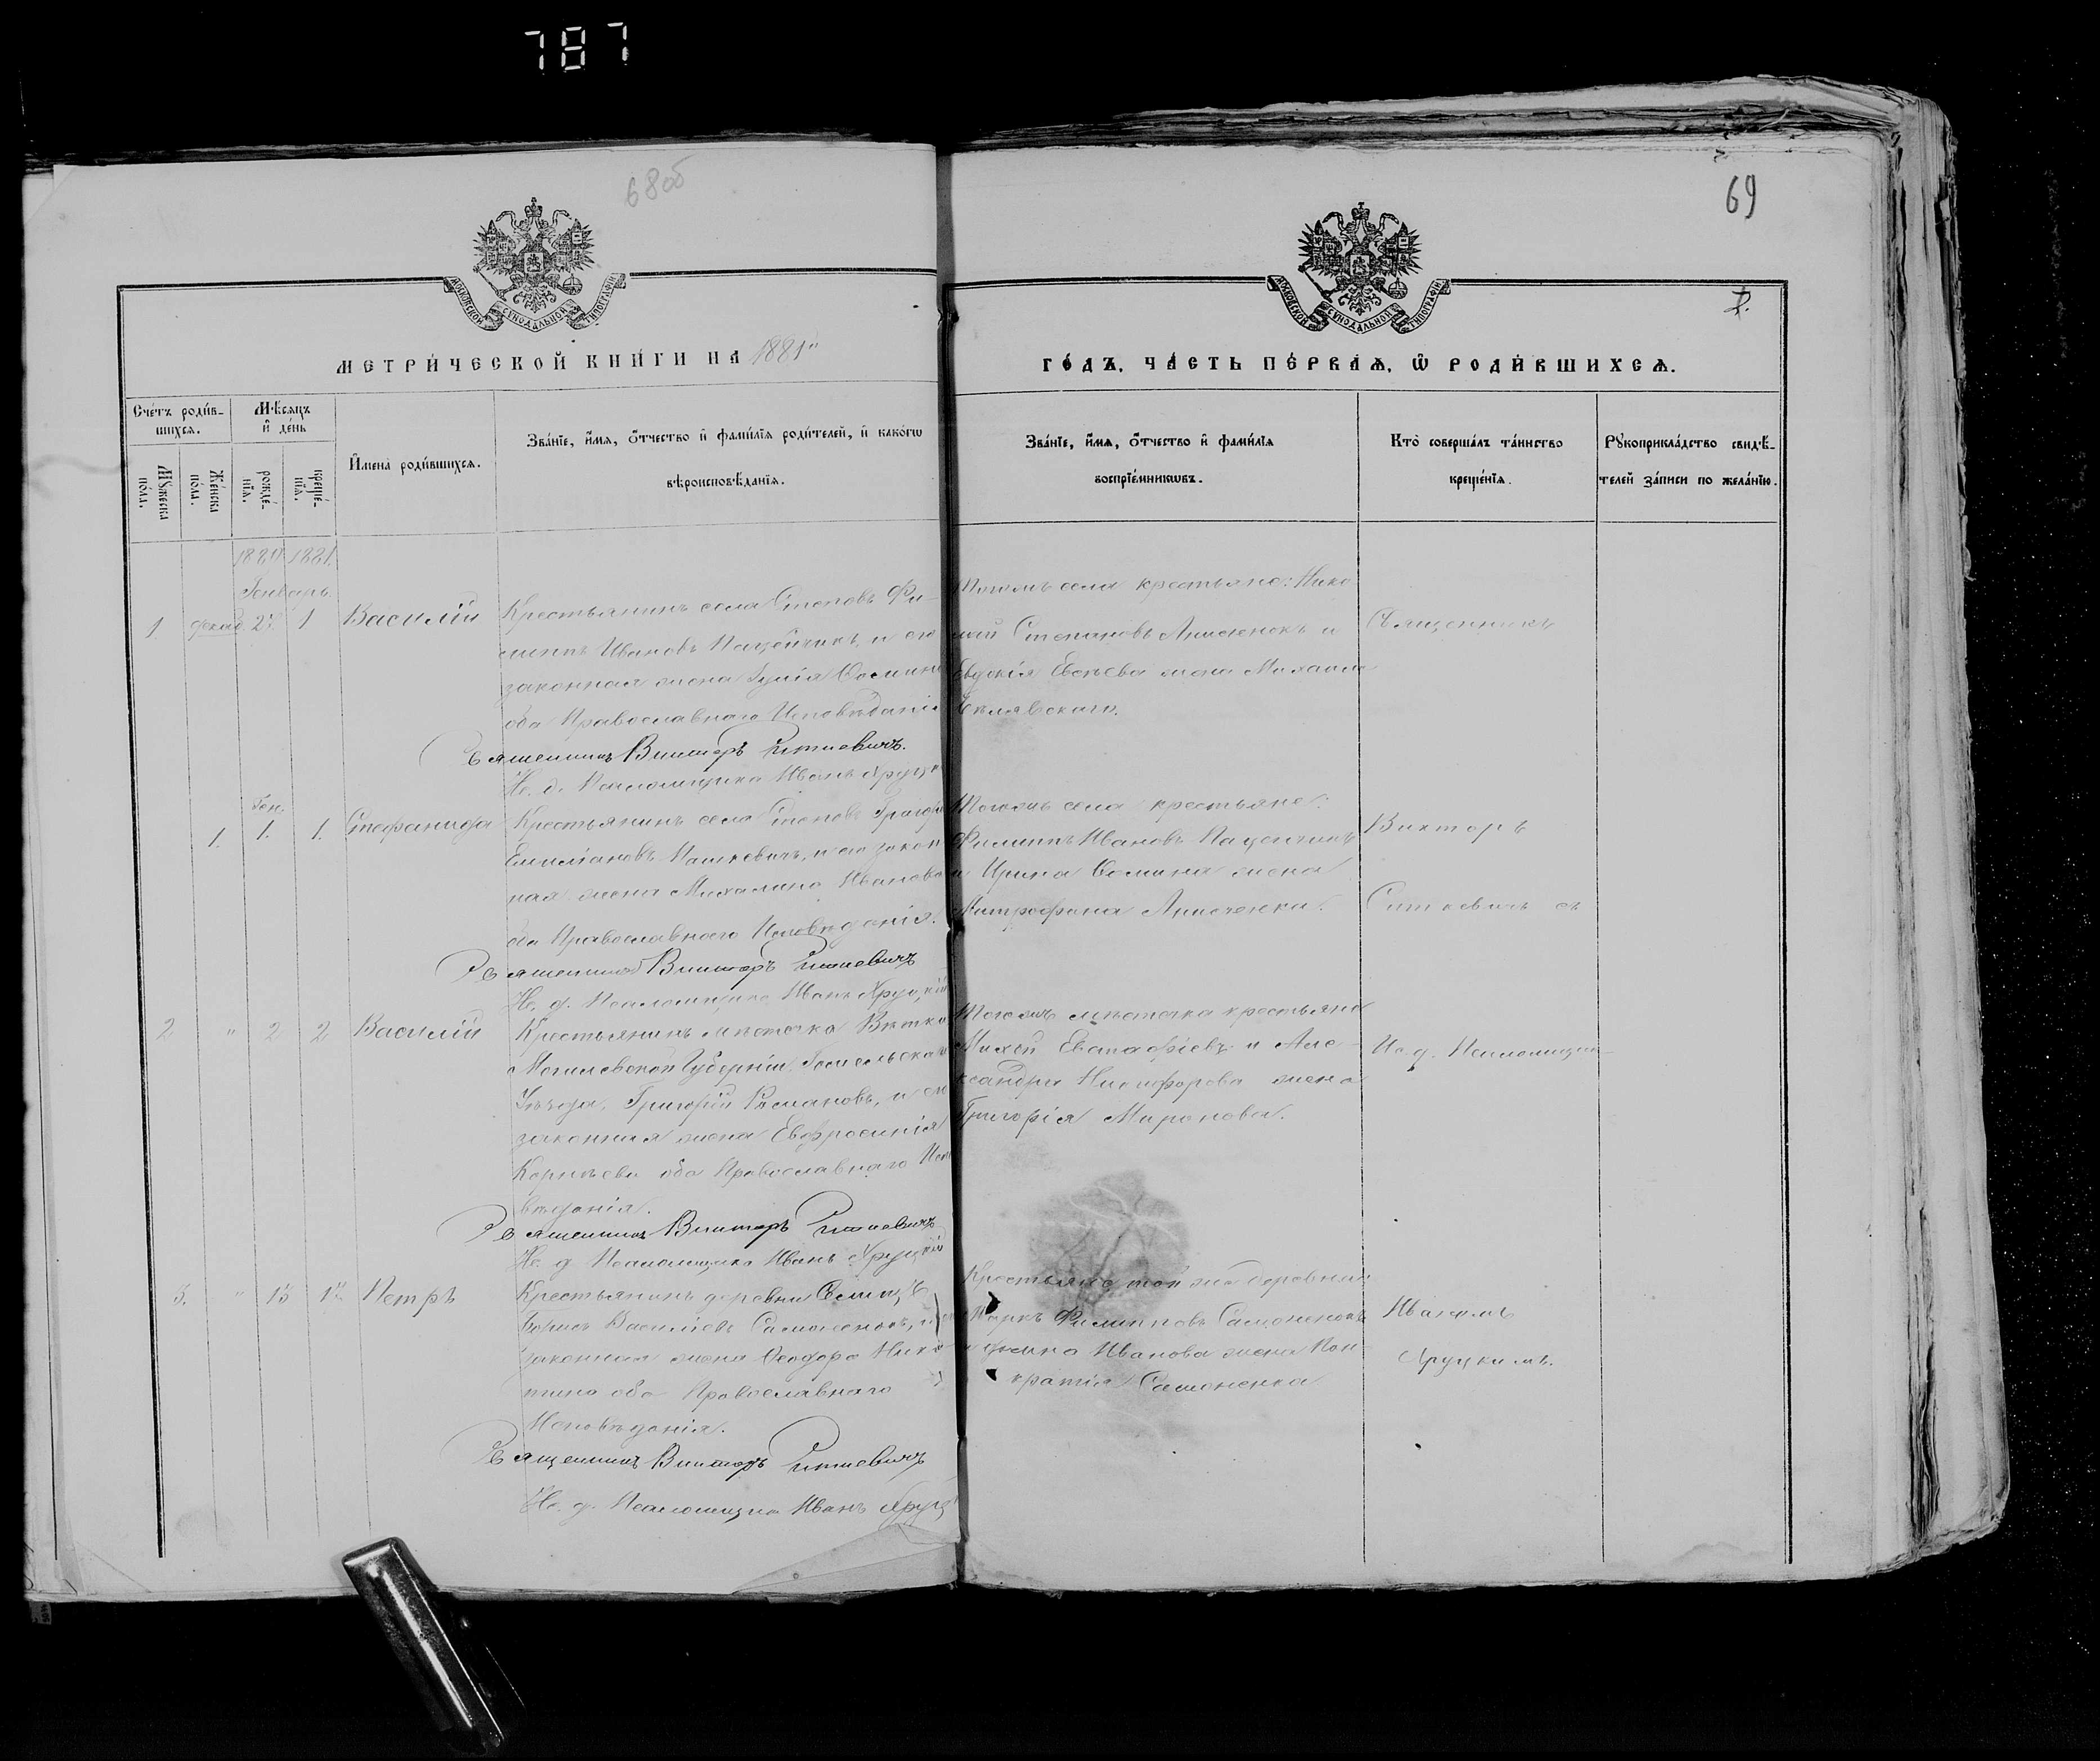 787
68об
69
МОСКОВСКОЙ СУНОДАЛЬНОЙ ТИПОГРАФІИ
МОСКОВСКОЙ СУНОДАЛЬНОЙ ТИПОГРАФІИ
МЕТРИ́ЧЕСКОЙ КНИ́ГИ НА 1881
ГО́ДЪ, ЧА́СТЬ ПЕ́РВАѦ, Ѡ҆ РОДИ́ВШИХСѦ.
Сче́тъ роди́в-
шихсѧ.
Мѣ́сѧцъ
и҆ де́нь
Мꙋ́жеска
по́ла.
Же́нска
по́ла.
рожде́-
нїѧ.
креще́-
нїѧ.
И҆мена̀ роди́вшихсѧ.
Зва́нїе, и҆́мѧ, ѻ҆́тчество и҆ фами́лїѧ роди́телей, и҆ какѡ́гѡ
вѣроисповѣ́данїѧ.
Зва́нїе, и҆́мѧ, ѻ҆́тчество и҆ фами́лїѧ
воспрїе́мникѡвъ.
Кто̀ соверша́лъ та́инство
креще́нїѧ.
Рꙋкоприкла́дство свидѣ́-
телей за́писи по жела́нїю.
1880 1881
Генварь
1 декаб. 27 1 Василій
Крестьянинъ села Степовъ Фи-
липпъ Ивановъ Пацейчикъ, и его
законная жена Фомина
оба Православнаго Исповѣданія
Священникъ Викторъ Ситкевичъ.
И. д. Псаломщика Иванъ Хруцкій
Тогожъ села крестьяне: Нико-
лай Степановъ Анисенокъ и
Евдокія жена Михаила
Священникъ
Ген.
1. 1. 1. Стефанида
Крестьянинъ села Степовъ Григорій
Емиліановъ Пашкевичъ, и его закон
ная жена Михалина Иванова
оба Православнаго Исповѣданія.
Священникъ Викторъ Ситкевичъ
И. д. Псаломщика Иванъ Хруцкій
Тогожъ села крестьяне:
Филиппъ Ивановъ Пацейчикъ
и Ирина Фомина жена
Митрофана Анисенка.
Викторъ
Ситкевичъ съ
2 " 2 2 Василій
Крестьянинъ мѣстечка Вѣтки
Могилевской Губерніи Гомельскаго
Уѣзда, Григорій Романовъ, и его
законная жена Евфросинія
Корнѣева оба Православнаго Испо
вѣданія.
Священникъ Викторъ Ситкевичъ
И. д. Псаломщика Иванъ Хруцкій
Тогожъ мѣстечка крестьяне
Михей Евстафіевъ и Але-
ксандра Никифорова жена
Григорія Миронова.
И. д. Псаломщика
3. " 13 Петръ
Крестьянинъ деревни Селищъ
Борисъ Василіевъ Самоненокъ, и его
законная жена Ѳеодора Ники-
тина оба Православнаго
Исповѣданія.
Священникъ Викторъ Ситкевичъ
И. д. Псаломщика Иванъ Хруц
Крестьяне той же деревни
Маркъ Филипповъ Самоненокъ
Иванова жена Пан-
кратія Самоненка
Иваномъ
Хруцкимъ.